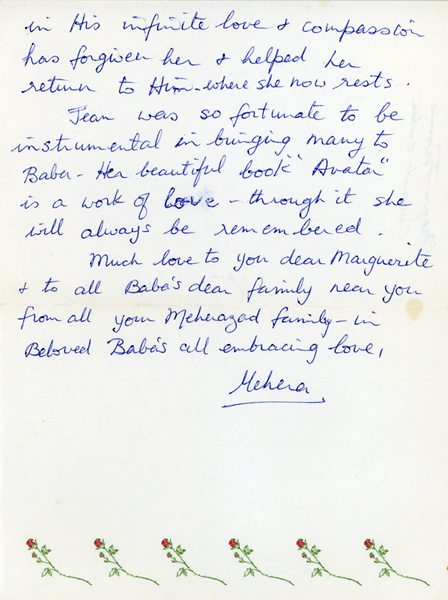 in His infinite love & compassion
has forgiven her & helped her
return to Him - where she now rests.
Jean was so fortunate to be
instrumental in bringing many to
Baba - Her beautiful book "Avatar"
is a work of love - through it she
will always be remembered.
Much love to you dear Marguerite
& to all Baba's dear family near you
from all your Meherazad family - in
Beloved Baba's all embracing love,
Mehera